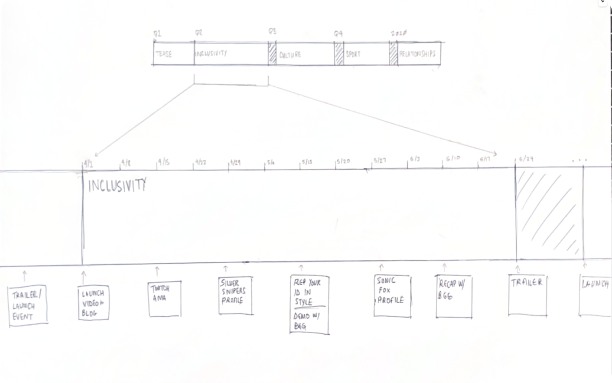 Q1 Q2 Q3 Q4 2020
TEASE INCLUSIVITY CULTURE SPORT RELATIONSHIPS
4/1 4/8 4/15 4/22 4/29 5/6 5/13 5/20 5/27 6/3 6/10 6/17 6/24 ...
INCLUSIVITY
TRAILER/
LAUNCH
EVENT
LAUNCH
VIDEO +
BLOG
TWITCH
AMA
SILVER
SNIPERS
PROFILE
REP YOUR
ID IN
STYLE
DEMO W/
BGG
SONIC
FOX
PROFILE
RECAP W/
BGG
TRAILER
LAUNCH